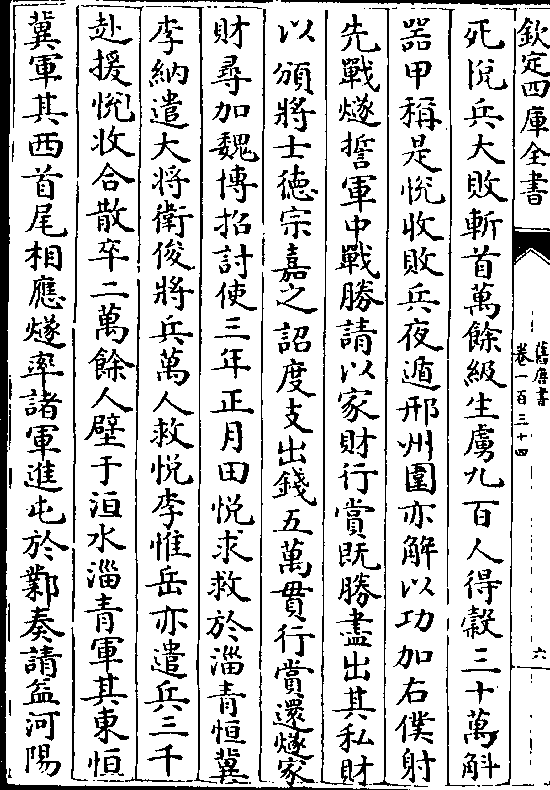 欽定四庫全書
舊唐書
卷一百三十四
六
死悅兵大敗斬首萬餘級生虜九百人得穀三十萬斛
器甲稱是悅收敗兵夜遁邢州圍亦解以功加右僕射
先戰燧誓軍中戰勝請以家財行賞既勝盡出其私財
以頒將士德宗嘉之詔度支出錢五萬貫行賞還燧家
財尋加魏博招討使三年正月田悅求救於淄青恒冀
李納遣大將衛俊將兵萬人救悅李惟岳亦遣兵三千
赴援悅收合散卒二萬餘人壁于洹水淄青軍其東恒
冀軍其西首尾相應燧率諸軍進屯於鄴奏請益河陽